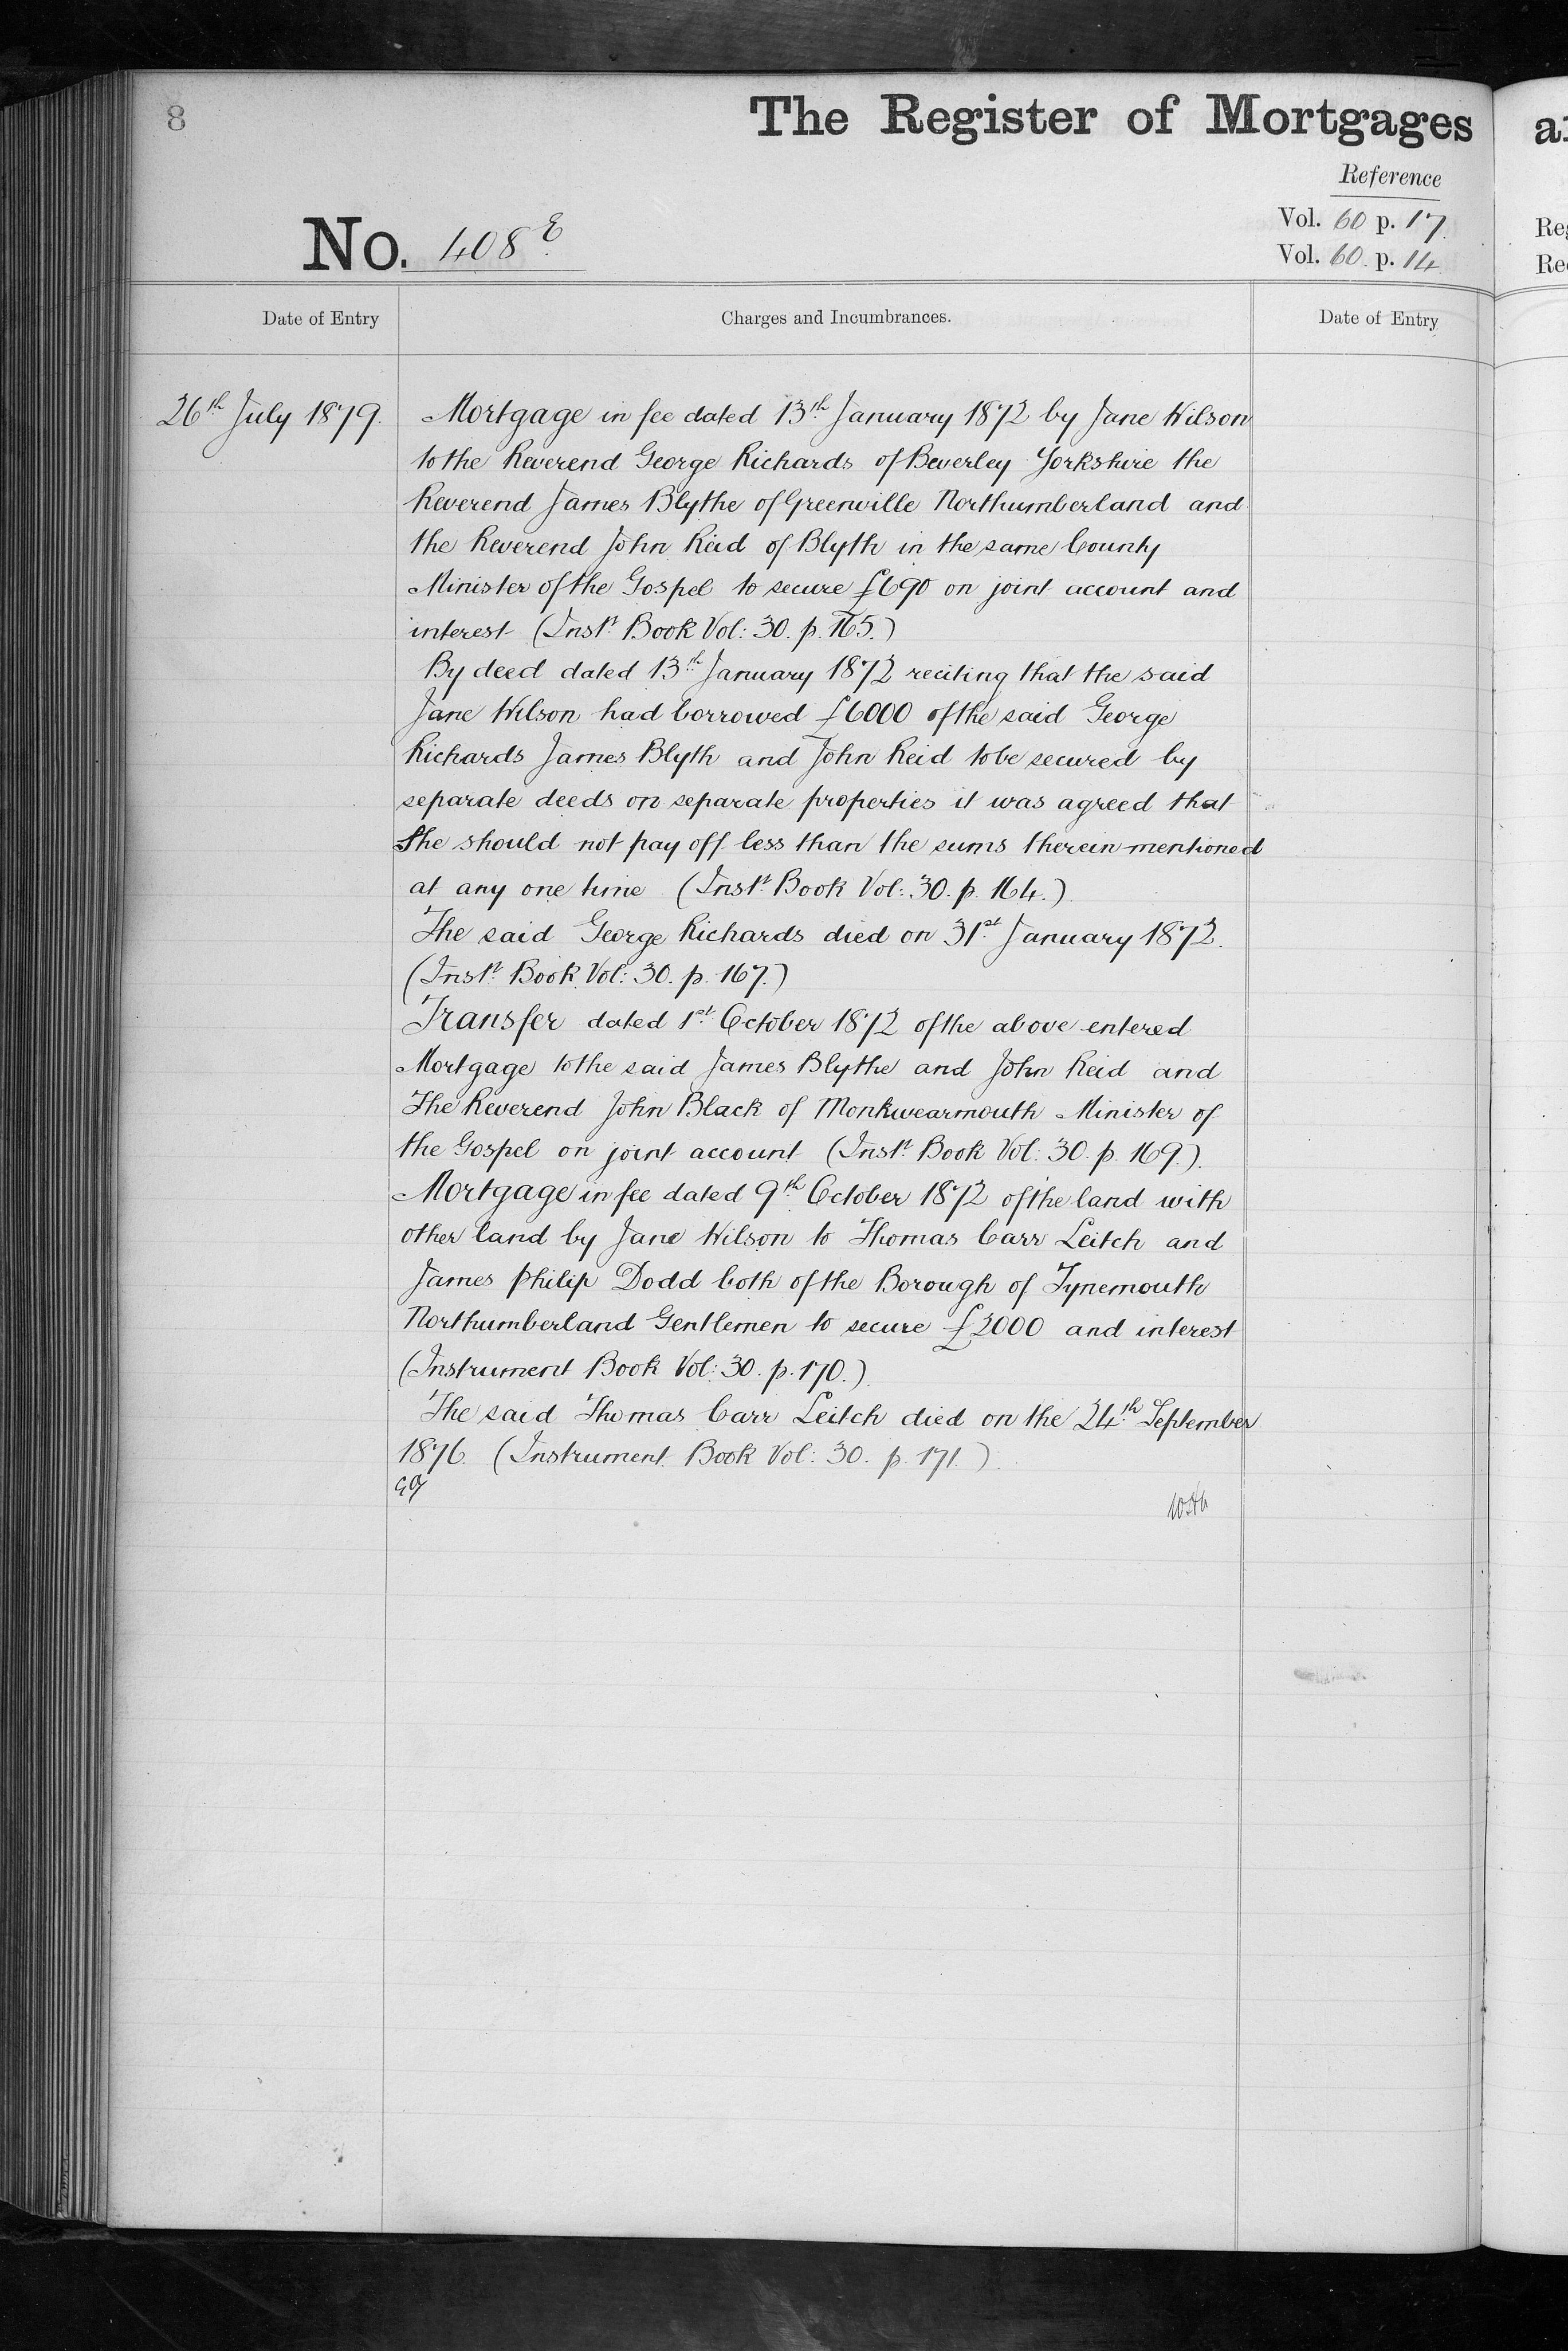 8
The Register of Mortgages
Reference
Vol. 60 p. 17.
Vol. 60. p. 14
No. 408 E
Date of Entry
Charges and Incumbrances.
Date of Entry
26th July 1879.
Mortgage in fee dated 13th January 1872 by Jane Wilson
to the Reverend George Richards of Beverley Yorkshire the
Reverend James Blythe of Greenville Northumberland and
the Reverend John Reid of Blyth in the same County
Minister of the Gospel to secure £690 on joint account and
interest (Instt. Book Vol: 30. p. 165.)
By deed dated 13th January 1872 reciting that the said
Jane Wilson had borrowed £6000 of the said George
Richards James Blyth and John Reid to be secured by
separate deeds on separate properties it was agreed that
She should not pay off less than the sums therein mentioned
at any one time (Instt. Book Vol: 30. p. 164.)
The said George Richards died on 31st January 1872.
(Instt. Book Vol: 30. p. 167.)
Transfer dated 1st October 1872 of the above entered
Mortgage to the said James Blythe and John Reid and
The Reverend John Black of Monkwearmouth Minister of
the Gospel on joint account (Instt. Book Vol: 30. p. 169.)
Mortgage in fee dated 9th October 1872 of the land with
other land by Jane Wilson to Thomas Carr Leitch and
James Philip Dodd both of the Borough of Tynemouth
Northumberland Gentlemen to secure £2000 and interest
(Instrument Book Vol: 30. p. 170.)
The said Thomas Carr Leitch died on the 24th September
1876. (Instrument Book Vol: 30. p. 171.)